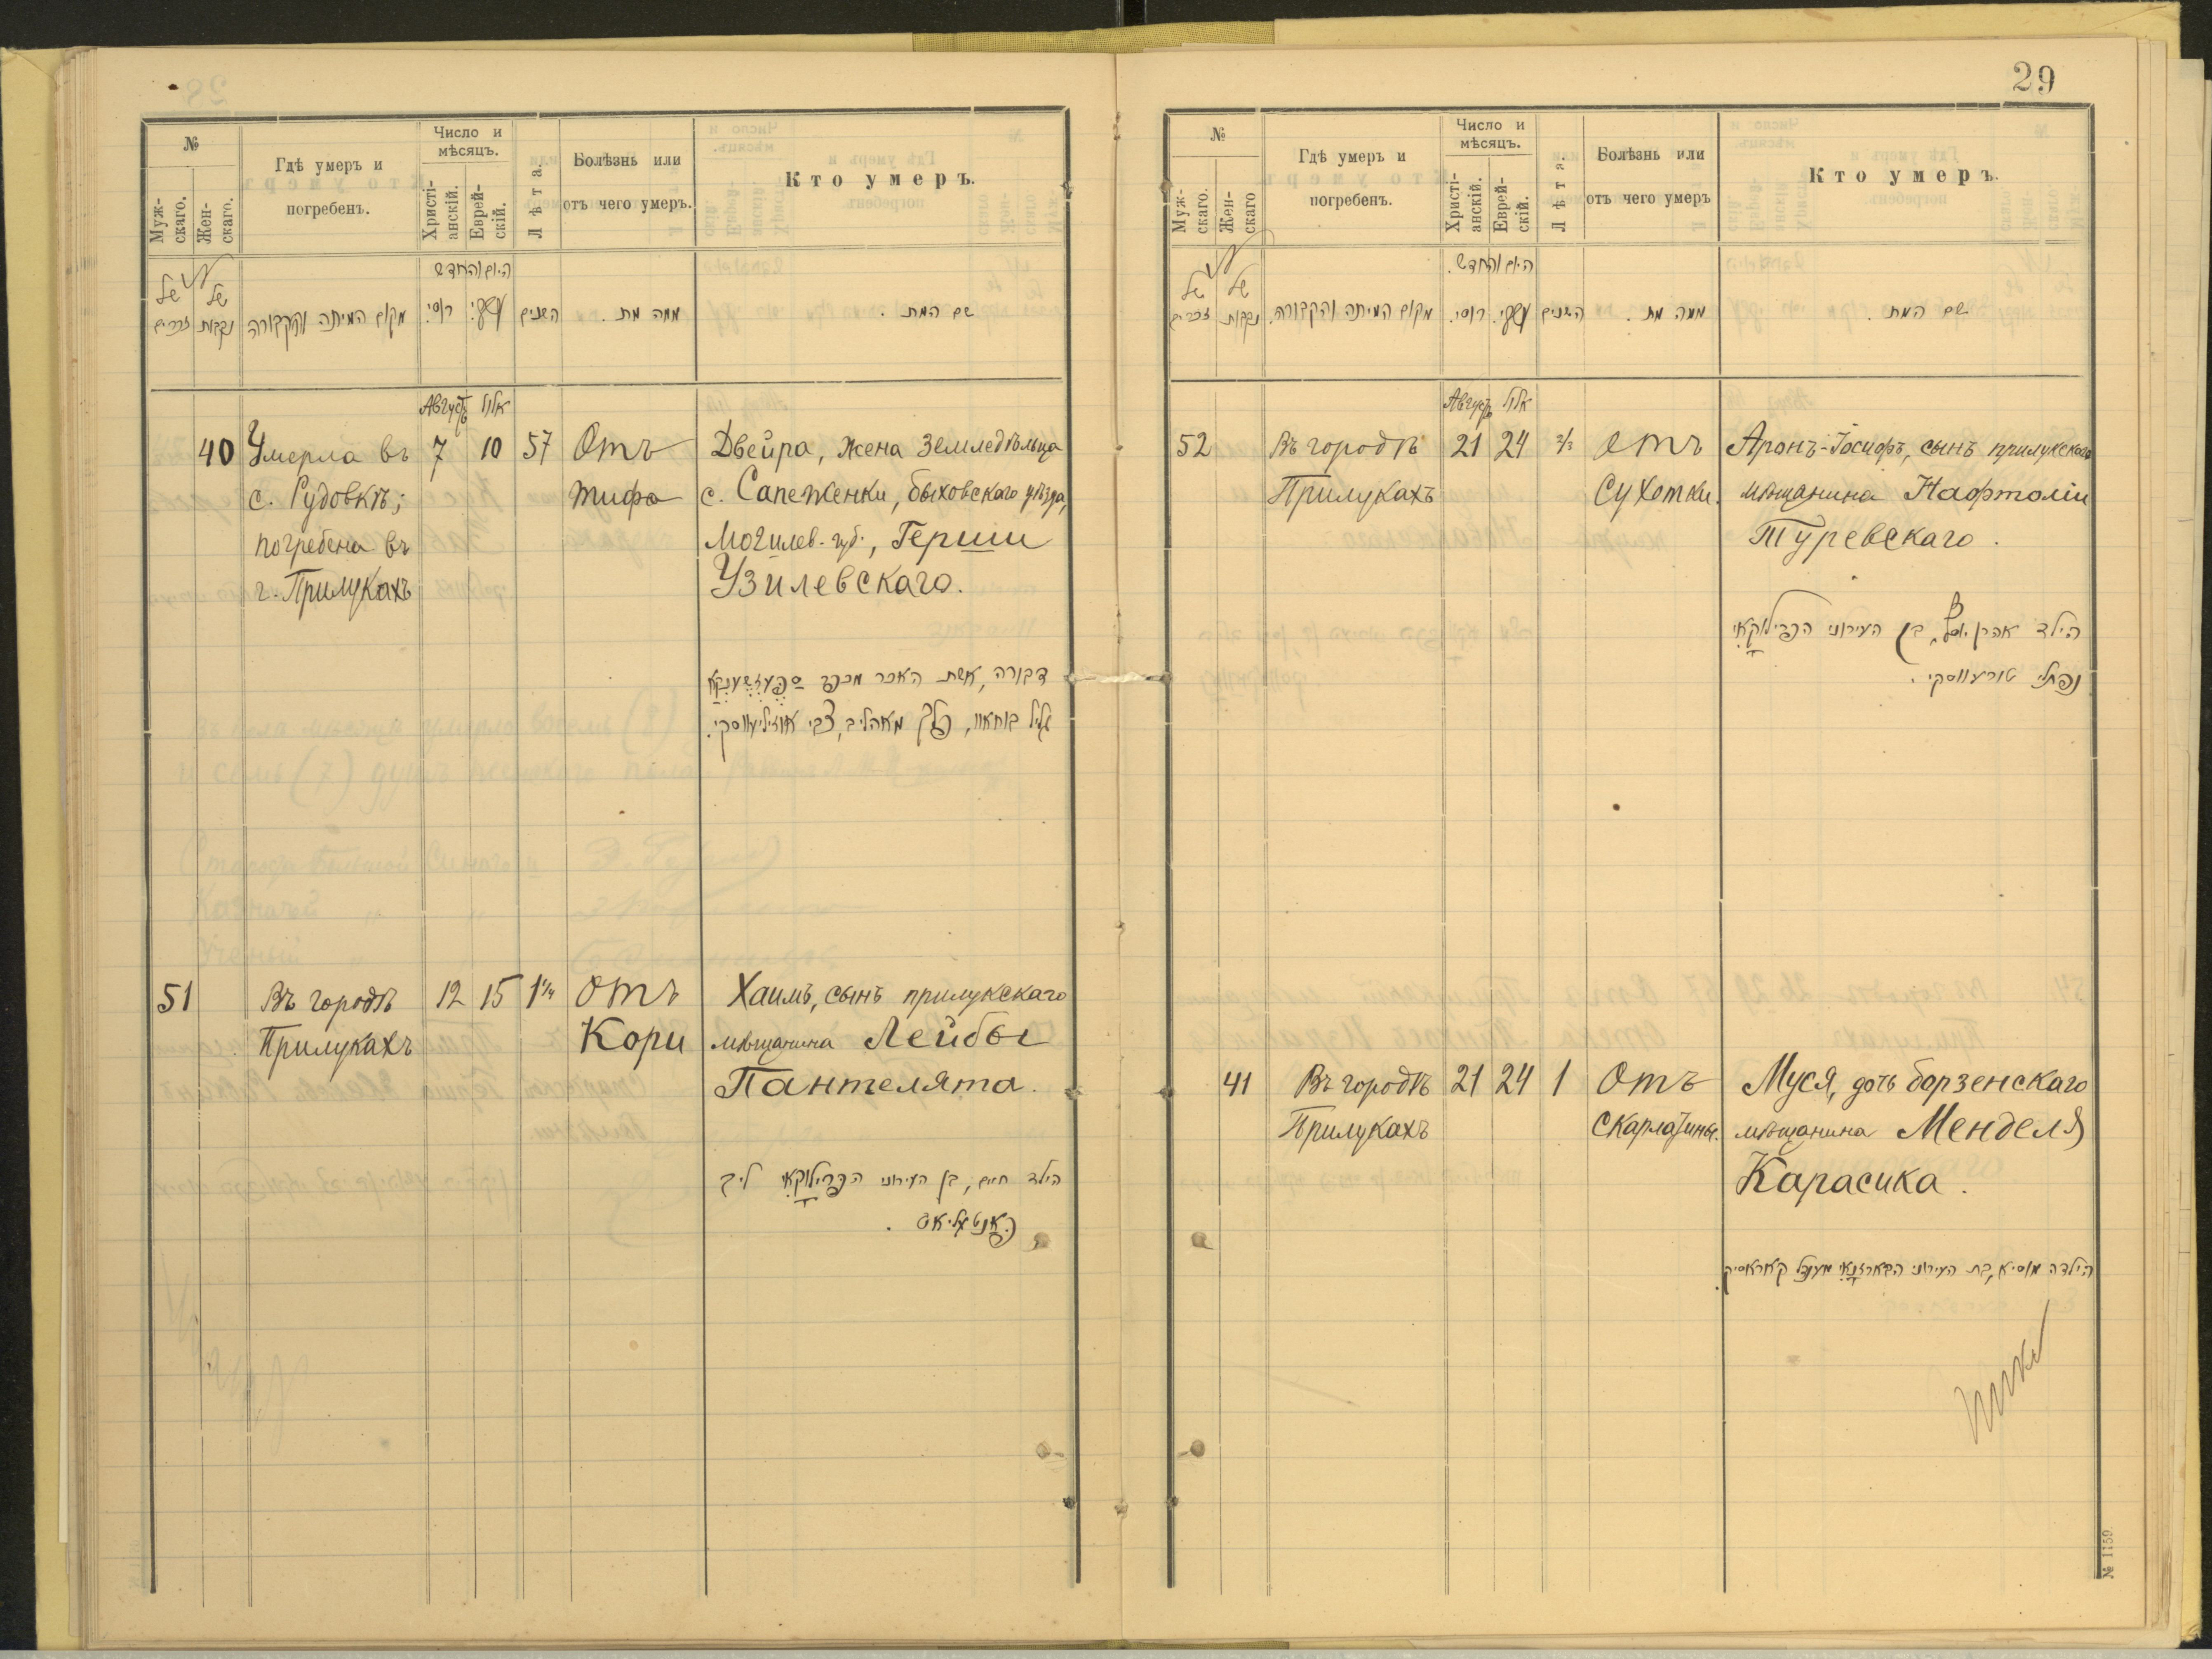 №
Муж-
скаго.
Жен-
скаго.
Гдѣ умеръ и
погребенъ.
Число и
мѣсяцъ.
Христі-
анскій.
Еврей-
скій.
Лѣта.
Болѣзнь или
отъ чего умеръ.
Кто умеръ.
היום והחדש
של
זכרים
של
נקבות
מקום המיתה והקבורה
רוסי.
השנים
ממה מת.
שם המת.
Августъ אלול
40 Умерла въ 7 10 57 Отъ Двейра, жена земледѣльца
с. Рудовкѣ; тифа с. Сапеженки, быховскаго уѣзда,
погребена въ Могилев. губ., Герши
г. Прилукахъ Узилевскаго.
דבורה, אשת האכר מכפר
גליל בוחאוו, פלך מאהליב, צבי אוזיליעווסקי.
51 Въ городѣ 12 15 1¼ отъ Хаимъ, сынъ прилукскаго
Прилукахъ Кори мѣщанина Лейбы
Пантелята.
הילד חיים, בן העירוני הפרילוקאי ליב
29
№
Муж-
скаго.
Жен-
скаго
Гдѣ умеръ и
погребенъ.
Число и
мѣсяцъ.
Христі-
анскій.
Еврей-
скій.
Лѣта.
Болѣзнь или
отъ чего умеръ
Кто умеръ.
היום והחדש.
של
זכרים
של
נקבות
מקום המיתה והקבורה.
רוסי.
השנים
ממה מת.
שם המת.
Августъ אלול
52 Въ городѣ 21 24 ⅔ отъ Аронъ-Іосифъ, сынъ прилукскаго
Прилукахъ Сухотки. мѣщанина Нафтоліи
Туревскаго.
הילד אהרן יוסף, בן העירוני הפרילוקאי
נפתלי טורעווסקי.
41 Въ городѣ 21 24 1 Отъ Муся, дочь борзенскаго
Прилукахъ Скарлатины. мѣщанина Менделя
Карасика.
הילדה מוסיא, בת העירוני הבארזנאי מענדל קאראסיק.
№ 1159.